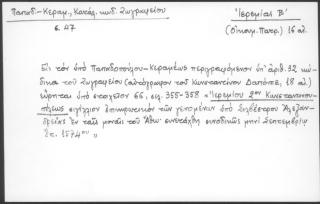 Παπαδ.-Κεραμ., Κατάλ. κωδ. Ζωγραφείου
σ. 47
Ἱερεμίας Β'
(Οἰκουμ. Πατρ.) 16 αἰ.
Εἰς τὸν ὑπὸ Παπαδοπούλου-Κεραμέως περιγραφόμενον ὑπ' ἀριθ. 32 κώ-
δικα τοῦ Ζωγραφείου (αὐτόγραφον τοῦ Κωνσταντίνου Δαπόντε, 18 αἰ.)
εὕρηται ὑπὸ στοιχεῖον 66, σελ. 355-358 «Ἱερεμίου 2ου Κωνσταντινου-
πόλεως σιγίλλιον ἐπικυρωτικὸν τῶν γενομένων ὑπὸ Σιλβέστρου Ἀλεξαν-
δρείας ἐν ταῖς μοναῖς τοῦ Ἄθω· συνετάχθη συνοδικῶς μηνὶ Σεπτεμβρίῳ
ἔτ. 1574ου »